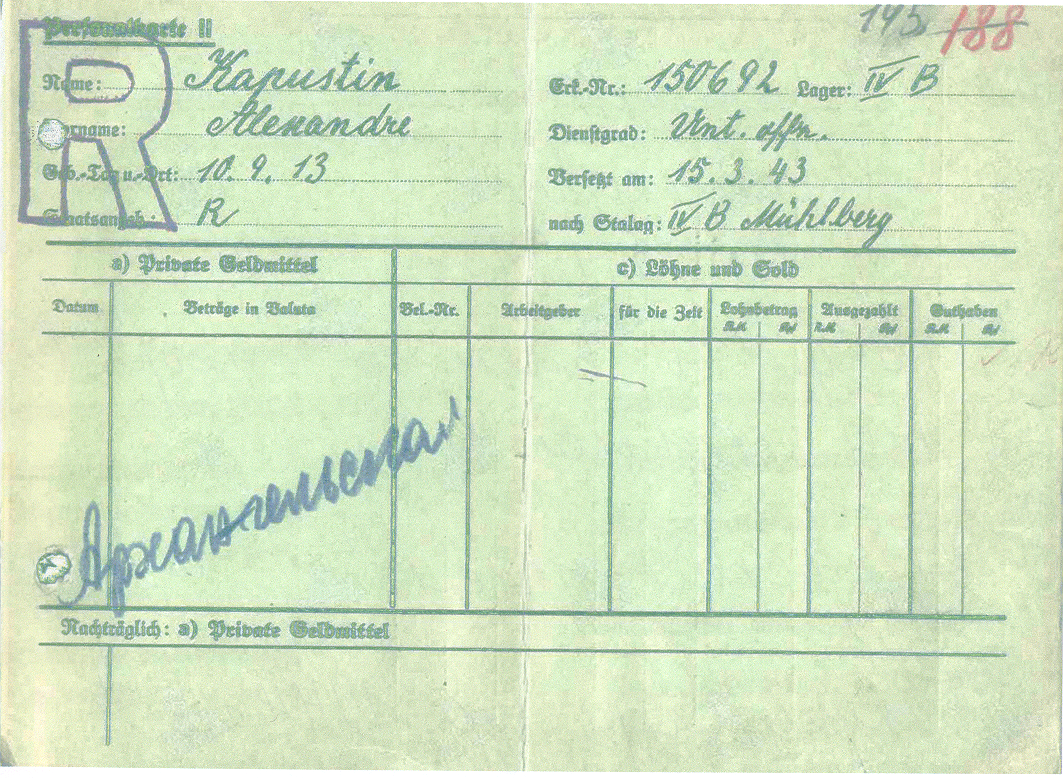 Personalkarte II
193 188
R
Name: Kapustin
Vorname: Alexandre
Geb.-Tag u.-Ort: 10. 9. 13
Staatsangeh.: R
Erk.-Nr.: 150692 Lager: IV B
Dienstgrad: Unt. offz.
Versetzt am: 15. 3. 43
nach Stalag: IV B Mühlberg
a) Private Geldmittel
c) Löhne und Sold
Datum Beträge in Valuta Bel.-Nr. Arbeitgeber für die Zeit Lohnbetrag Ausgezahlt Guthaben
RM Rpf RM Rpf RM Rpf
Архангельская
Nachträglich: a) Private Geldmittel